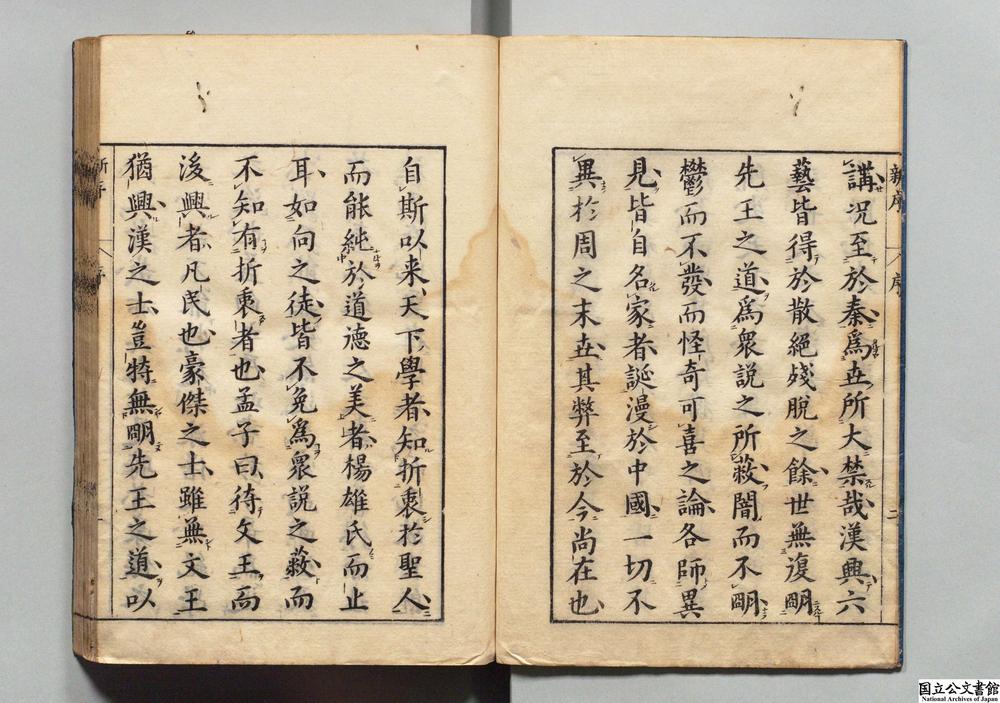 講况至於秦爲世所大禁哉漢興六
藝皆得於散絕殘脫之餘世無復明
先王之道爲衆說之所蔽闇而不明
鬱而不發而怪奇可喜之論各師異
見皆自名家者誕漫於中國一切不
異於周之末世其弊至於今尚在也
新序
序
二
自斯以来天下學者知折衷於聖人
而能純於道德之美者楊雄氏而止
耳如向之徒皆不免爲衆說之蔽而
不知有折衷者也孟子曰待文王而
後興者凡民也豪傑之士雖無文王
猶興漢之士豈特無明先王之道以
新序
序
国立公文書館
National Archives of Japan